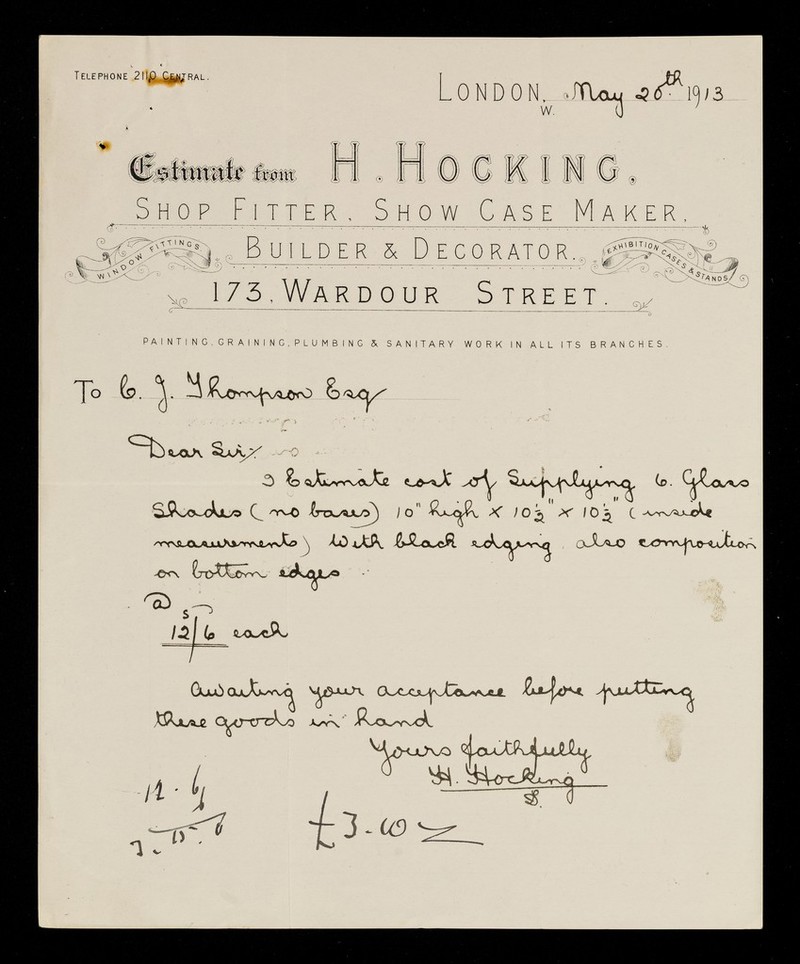 TELEPHONE 2110 CENTRAL.
LONDON, W. May 26th 1913
Estimate from H. HOCKING,
SHOP FITTER, SHOW CASE MAKER,
WINDOW FITTINGS
BUILDER & DECORATOR.
EXHIBITION CASES & STANDS
173, WARDOUR STREET.
PAINTING, GRAINING, PLUMBING & SANITARY WORK IN ALL ITS BRANCHES.
To C. J. Thompson Esq
Dear Sir,
I Estimate cost of Supplying 6. Glass
Shades (no bases) 10" high × 10½" × 10½" (inside
measurements) With black edging, also composition
on bottom edges
@
12/6 each
Awaiting your acceptance before putting
these goods in hand
Yours faithfully
H. Hocking
12 . 6
£3 .